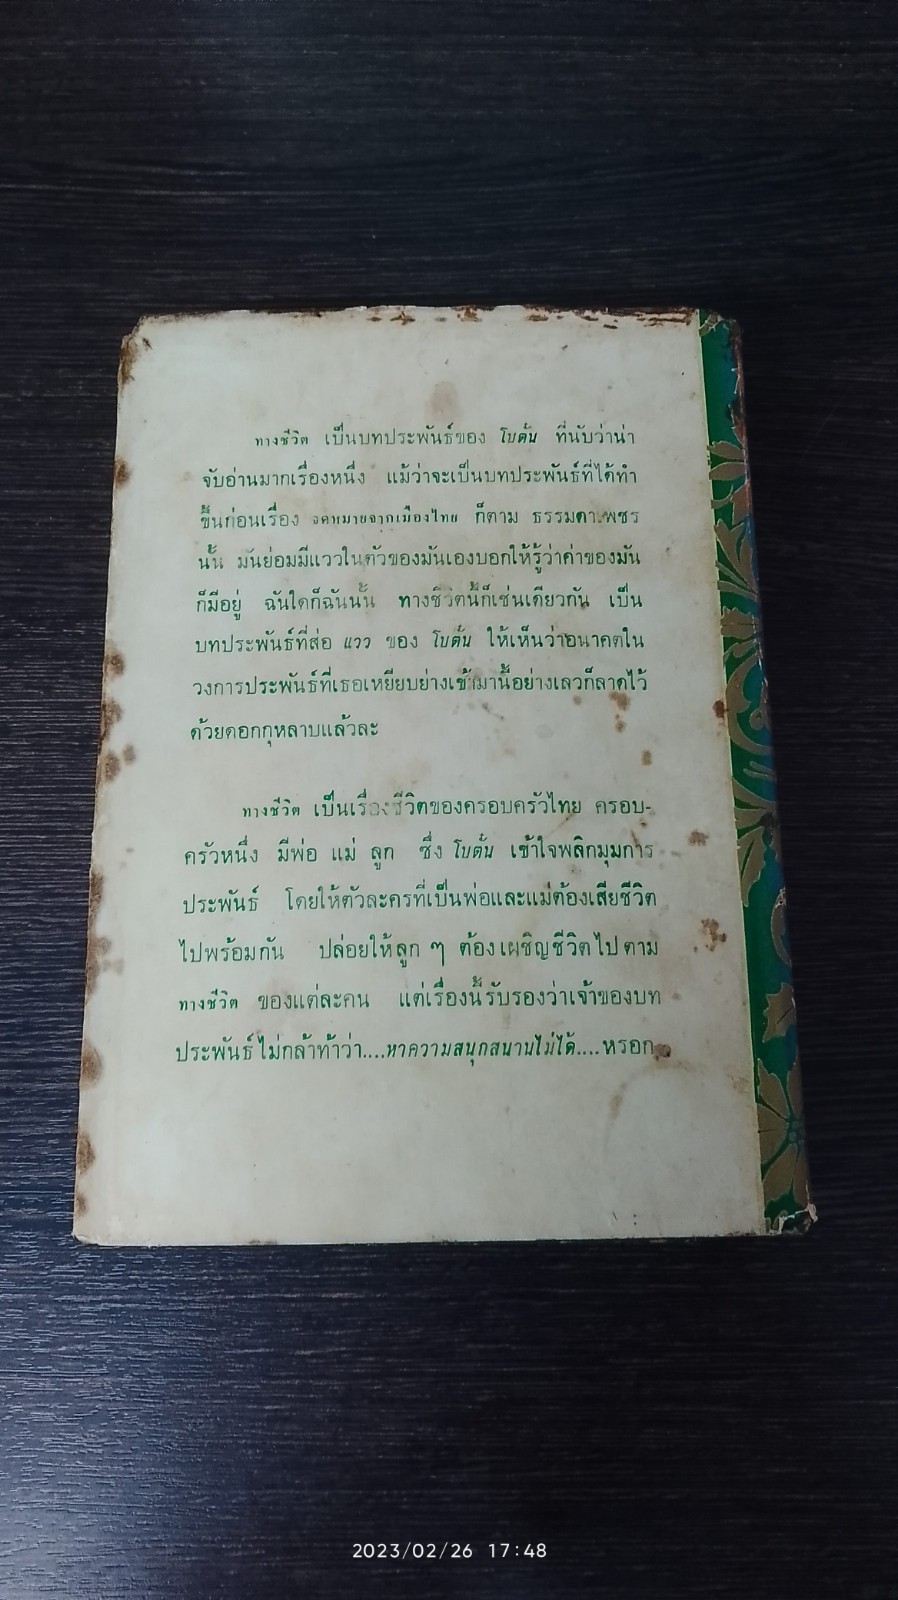 ทางชีวิต เป็นบทประพันธ์ของ โบตั๋น ที่นับว่าน่า
จับอ่านมากเรื่องหนึ่ง แม้ว่าจะเป็นบทประพันธ์ที่ได้ทำ
ขึ้นก่อนเรื่อง จดหมายจากเมืองไทย ก็ตาม ธรรมดาเพชร
นั้น มันย่อมมีแววในตัวของมันเองบอกให้รู้ว่าค่าของมัน
ก็มีอยู่ ฉันใดก็ฉันนั้น ทางชีวิตนี้ก็เช่นเดียวกัน เป็น
บทประพันธ์ที่ส่อ แวว ของ โบตั๋น ให้เห็นว่าอนาคตใน
วงการประพันธ์ที่เธอเหยียบย่างเข้ามานี้อย่างเลวก็ลาดไว้
ด้วยดอกกุหลาบแล้วละ
ทางชีวิต เป็นเรื่องชีวิตของครอบครัวไทย ครอบ-
ครัวหนึ่ง มีพ่อ แม่ ลูก ซึ่ง โบตั๋น เข้าใจพลิกมุมการ
ประพันธ์ โดยให้ตัวละครที่เป็นพ่อและแม่ต้องเสียชีวิต
ไปพร้อมกัน ปล่อยให้ลูก ๆ ต้องเผชิญชีวิตไปตาม
ทางชีวิต ของแต่ละคน แต่เรื่องนี้รับรองว่าเจ้าของบท
ประพันธ์ไม่กล้าท้าว่า....หาความสนุกสนานไม่ได้....หรอก
2023/02/26 17:48